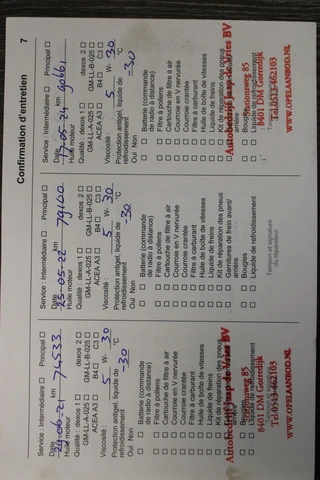 Confirmation d'entretien 7
Service : Intermédiaire Principal
Date 24-06-21 74533 km
Huile moteur
Qualité : dexos 1 dexos 2
GM-LL-A-025 GM-LL-B-025
ACEA A3 B4 C3
Viscosité : 5 W- 30
Protection antigel, liquide de
refroidissement -30 °C
Oui Non
Batterie (commande
de radio à distance)
Filtre à pollens
Cartouche de filtre à air
Courroie en V nervurée
Courroie crantée
Filtre à carburant
Huile de boîte de vitesses
Liquide de freins
Kit de réparation des pneus
Bougies
Liquide de refroidissement
Autobedrijf Jaap de Vries BV
Stationsweg 85
8401 DM Gorredijk
Tel 0513-462103
WWW.OPELAANBOD.NL
Service : Intermédiaire Principal
Date 25-05-22 79100 km
Huile moteur
Qualité : dexos 1 dexos 2
GM-LL-A-025 GM-LL-B-025
ACEA A3 B4 C3
Viscosité : 5 W- 30
Protection antigel, liquide de
refroidissement -30 °C
Oui Non
Batterie (commande
de radio à distance)
Filtre à pollens
Cartouche de filtre à air
Courroie en V nervurée
Courroie crantée
Filtre à carburant
Huile de boîte de vitesses
Liquide de freins
Kit de réparation des pneus
Garnitures de frein avant/
arrière
Bougies
Liquide de refroidissement
Tampon et signature
du réparateur
Service : Intermédiaire Principal
Date 17-05-24 90661 km
Huile moteur
Qualité : dexos 1 dexos 2
GM-LL-A-025 GM-LL-B-025
ACEA A3 B4 C3
Viscosité : 5 W- 30
Protection antigel, liquide de
refroidissement -30 °C
Oui Non
Batterie (commande
de radio à distance)
Filtre à pollens
Cartouche de filtre à air
Courroie en V nervurée
Courroie crantée
Filtre à carburant
Huile de boîte de vitesses
Liquide de freins
Kit de réparation des pneus
arrière
Bougies
Liquide de refroidissement
Autobedrijf Jaap de Vries BV
Stationsweg 85
8401 DM Gorredijk
Tel 0513-462103
WWW.OPELAANBOD.NL